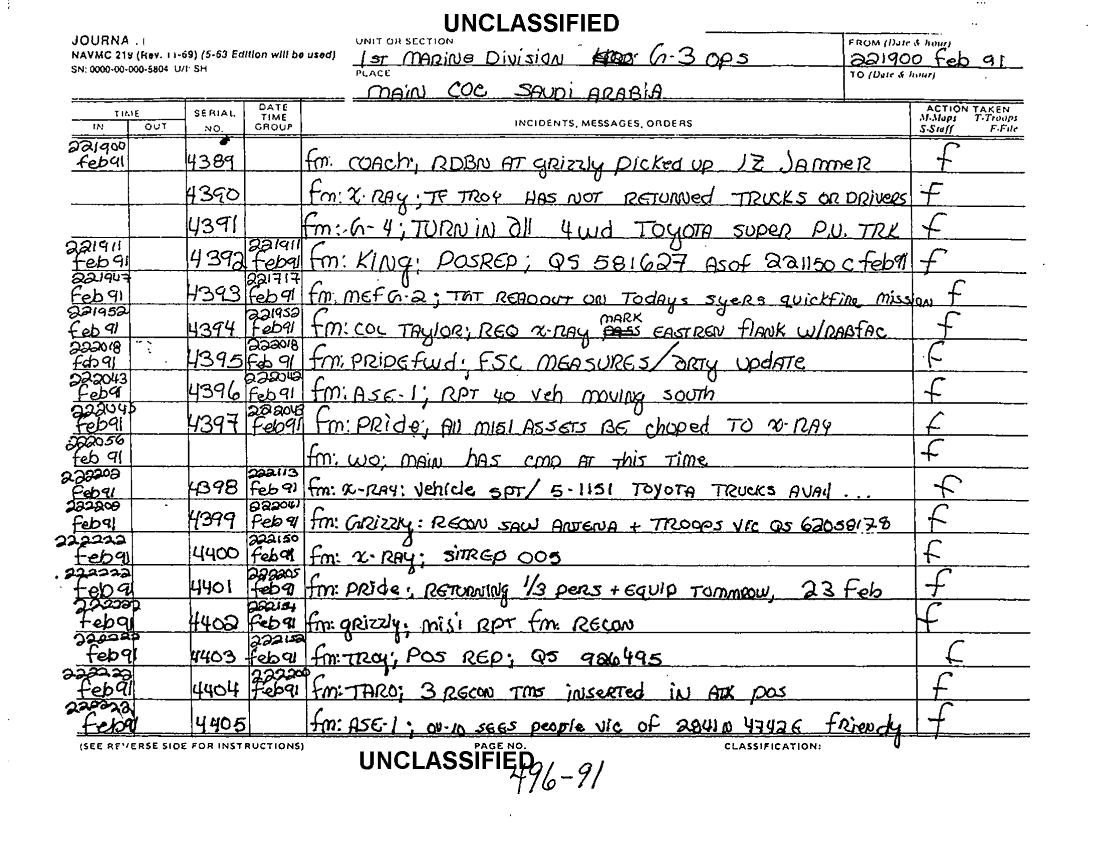 UNCLASSIFIED
JOURNA
NAVMC 219 (Rev. 11-69) (5-63 Edition will be used)
SN: 0000-00-000-5804 U/I SH
UNIT OR SECTION
1st MARINE DIVISION G-3 OPS
PLACE
MAIN COC SAUDI ARABIA
FROM (Date & hour)
221900 Feb 91
TO (Date & hour)
TIME
IN OUT
SERIAL NO.
DATE TIME GROUP
INCIDENTS, MESSAGES, ORDERS
ACTION TAKEN
M-Maps T-Troops
S-Staff F-File
221900 feb91 4389 fm: COACH; RDBN AT grizzly picked up 1Z JAmmER f
4390 fm: X-RAY; TF TROY HAS NOT RETURNED TRUCKS OR DRIVERS f
4391 fm: G-4; TURN IN All 4wd TOYOTA SUPER P.U. TRK f
221911 feb91 4392 221911 feb91 fm: KING; POSREP; QS 581627 AS of 221150 C feb91 f
221947 feb91 4393 221717 feb91 fm: MEF G-2; TGT READOUT ON TODAYS syers quickfire mission f
221952 feb91 4394 221952 feb91 fm: COL TAYLOR; REQ X-RAY MARK EASTREN flANK W/RABFAC f
222018 feb91 4395 222018 feb 91 fm: PRIDE fwd; FSC MEASURES/ARTY UPDATE f
222043 feb91 4396 222042 feb91 fm: ASE-1; RPT 40 Veh moving south f
222045 feb91 4397 222043 feb91 fm: PRIDE; All M151 ASSETS BE choped TO X-RAY f
222056 feb 91 fm: WO; MAIN hAS CMD AT this TIME f
222202 feb91 4398 222113 feb 91 fm: X-RAY: Vehicle SPT/ 5-1151 TOYOTA TRUCKS AVAil ... f
222208 feb91 4399 feb 91 fm: GRIZZLY: RECON SAW ANTENA + TROOPS VIC QS 62058178 f
222222 feb91 4400 222150 feb 91 fm: X-RAY; SITREP 005 f
222222 feb91 4401 222205 feb 91 fm: PRIDE; RETURNING 1/3 pers + EQUIP TOMMROW, 23 Feb f
222222 feb91 4402 222154 feb 91 fm: grizzly; misi RPT fm. RECON f
222222 feb91 4403 222152 feb91 fm: TROY; POS REP; QS 926495 f
222222 feb91 4404 222200 feb91 fm: TARO; 3 RECON TMS inserted in ATK pos f
222222 feb91 4405 fm: ASE-1; OV-10 SEES people VIC of 2841N 4742E friendy f
(SEE REVERSE SIDE FOR INSTRUCTIONS) PAGE NO. CLASSIFICATION:
UNCLASSIFIED
496-91